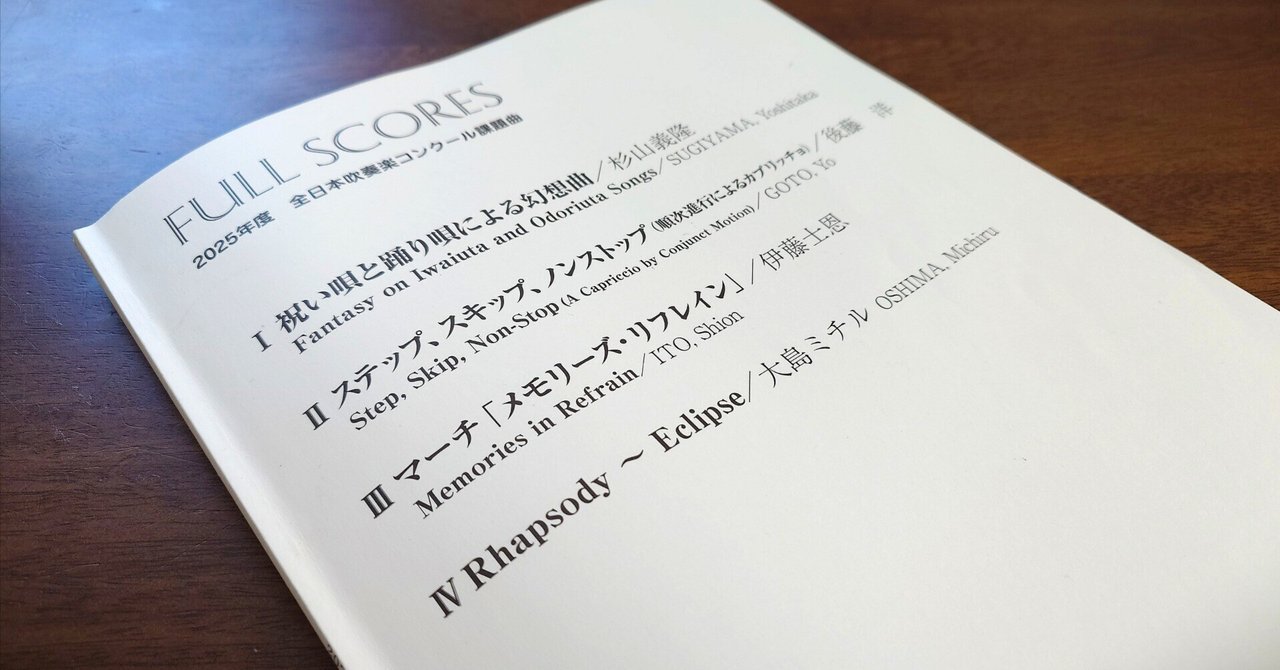 FULL SCORES
2025年度 全日本吹奏楽コンクール課題曲
I 祝い唄と踊り唄による幻想曲／杉山義隆
Fantasy on Iwaiuta and Odoriuta Songs／SUGIYAMA, Yoshitaka
II ステップ、スキップ、ノンストップ（順次進行によるカプリッチョ）／後藤 洋
Step, Skip, Non-Stop (A Capriccio by Conjunct Motion)／GOTO, Yo
III マーチ「メモリーズ・リフレイン」／伊藤士恩
Memories in Refrain／ITO, Shion
IV Rhapsody ～ Eclipse／大島ミチル OSHIMA, Michiru